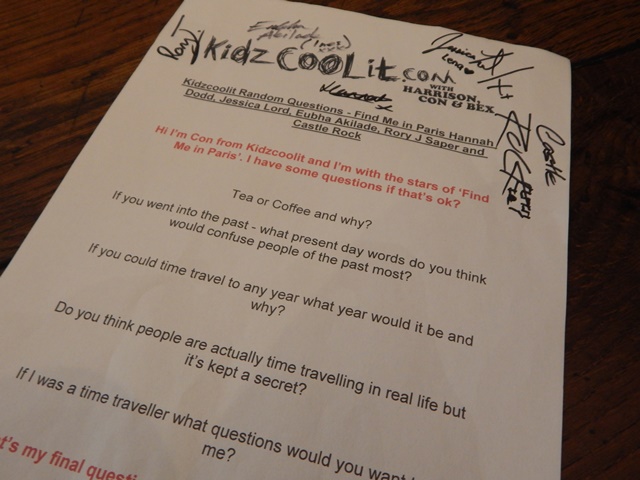 Rory J
Eubha
Akilade
(Inez xxx)
Kidz COOLit.com
WITH
HARRISON,
CON & BEX
Jessica
Lena
Hannah
Castle
Rock
Kidzcoolit Random Questions - Find Me in Paris Hannah
Dodd, Jessica Lord, Eubha Akilade, Rory J Saper and
Castle Rock
Hi I'm Con from Kidzcoolit and I'm with the stars of 'Find
Me in Paris'. I have some questions if that's ok?
Tea or Coffee and why?
If you went into the past - what present day words do you think
would confuse people of the past most?
If you could time travel to any year what year would it be and
why?
Do you think people are actually time travelling in real life but
it's kept a secret?
If I was a time traveller what questions would you want
me?
t's my final questi